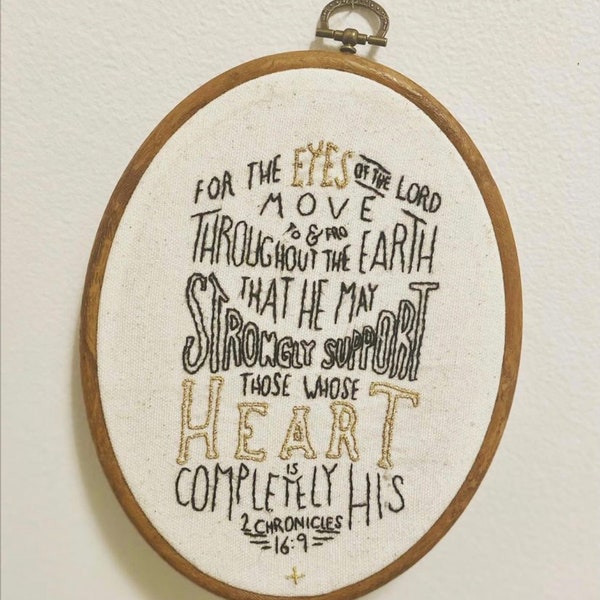 FOR THE EYES OF THE LORD
MOVE
TO & FRO
THROUGHOUT THE EARTH
THAT HE MAY
STRONGLY SUPPORT
THOSE WHOSE
HEART
IS
COMPLETELY HIS
2 CHRONICLES
16:9